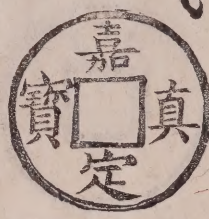 嘉定真寶